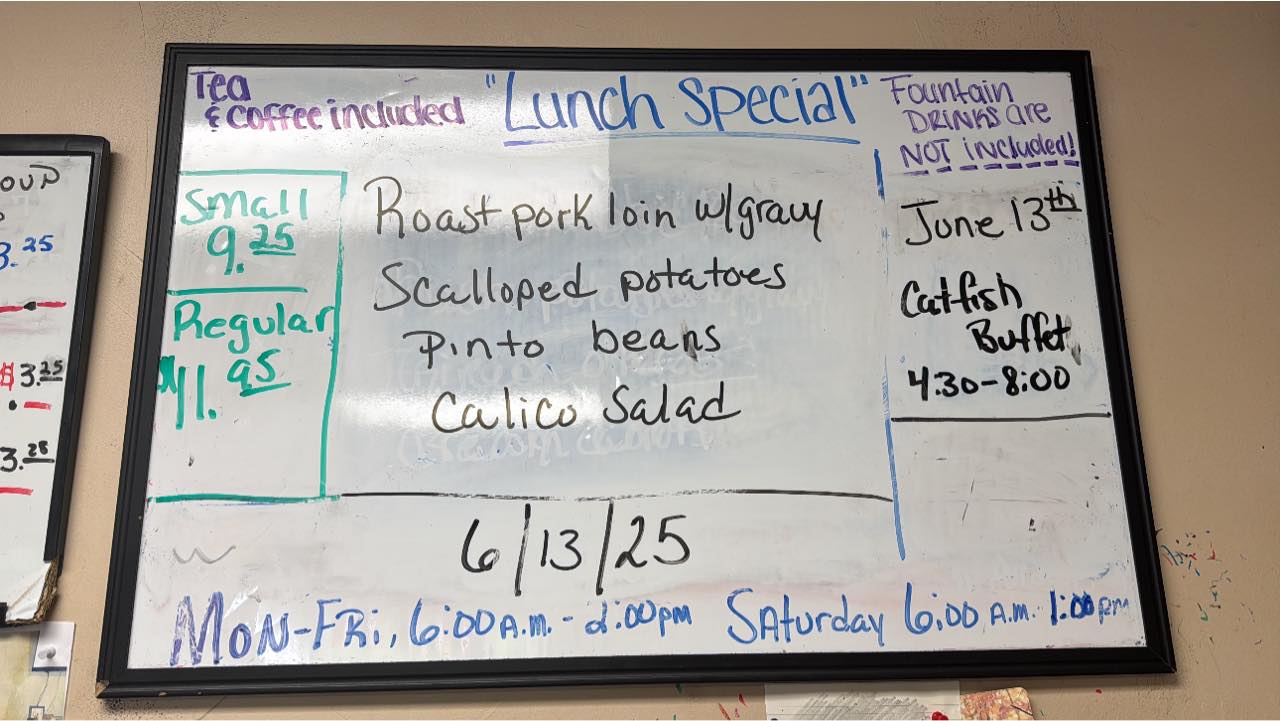 Tea
& Coffee included
"Lunch Special"
Fountain
DRINKS are
NOT included!
Small
9.25
Regular
$11.95
Roast pork loin w/gravy
Scalloped potatoes
Pinto beans
Calico Salad
June 13th
Catfish
Buffet
4:30-8:00
6/13/25
MON-FRi, 6:00 A.m. - 2:00pm Saturday 6:00 A.m. 1:00pm
OUP
3.25
$3.25
3.25